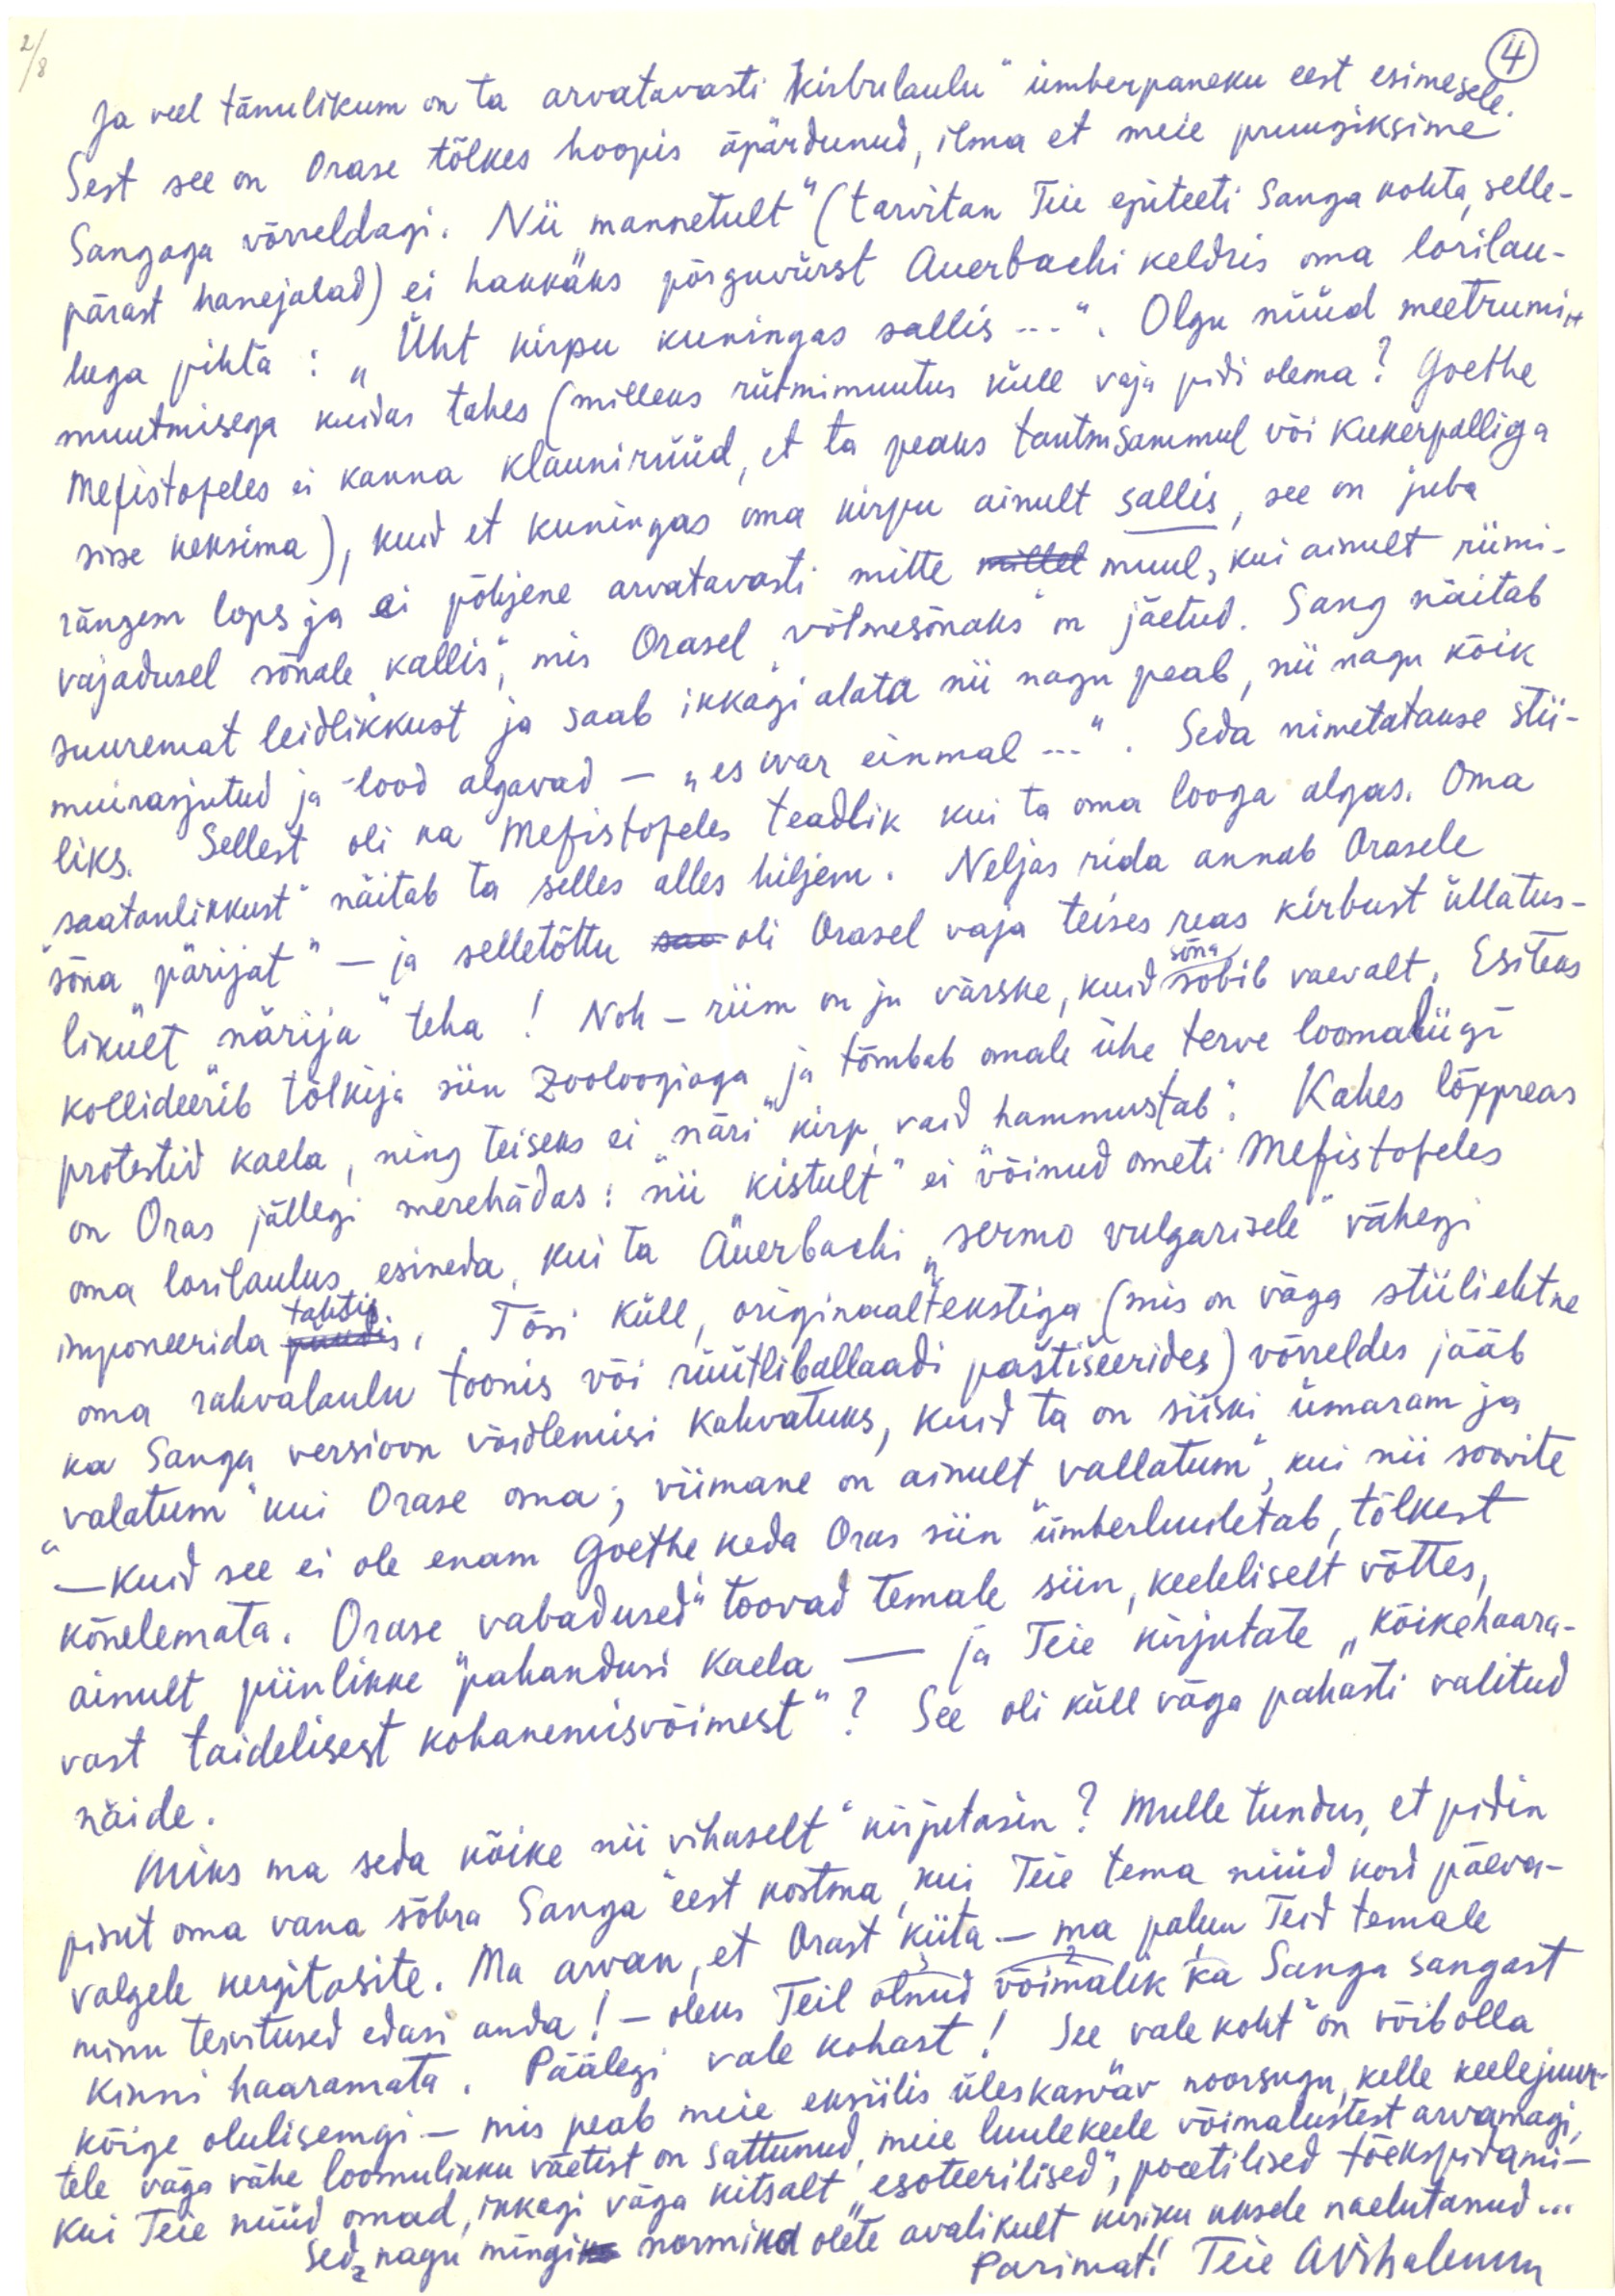 2/8
4
Ja veel tänulikum on ta arvatavasti "kirbulaulu" ümberpaneku eest esimesele.
Sest see on Orase tõlkes hoopis äpärdunud, ilma et meie pruugiksime
Sangaga võrreldagi. Nii "mannetult" (tarvitan Teie epiteeti Sanga kohta, selle-
pärast hanejalad) ei hakkaks põrguvürst Auerbachi keldris oma lorilau-
luga pihta: „Üht kirpu kuningas sallis ...". Olgu nüüd meetrumi
muutmisega kuidas tahes (milleks rütmimuutus küll vaja pidi olema? Goethe
Mefistofeles ei kanna klaunirüüd, et ta peaks tantsusammul või kukerpalliga
sisse keksima), kuid et kuningas oma kirpu ainult sallis, see on juba
rängem lops ja ei põhjene arvatavasti mitte millel muul, kui ainult riimi-
vajadusel sõnale "kallis", mis Orasel "võtmesõnaks" on jäetud. Sang näitab
suuremat leidlikkust ja saab ikkagi alata nii nagu peab, nii nagu kõik
muinasjutud ja -lood algavad — „es war einmal ...". Seda nimetatakse stii-
liks. Sellest oli ka Mefistofeles teadlik kui ta oma looga algas. Oma
"saatanlikkust" näitab ta selles alles hiljem. Neljas rida annab Orasele
sõna "pärijat" — ja selletõttu sao oli Orasel vaja teises reas kirbust üllatus-
likult "närija" teha! Noh – riim on ju värske, kuid sõna sobib vaevalt. Esiteks
kollideerib tõlkija siin zooloogiaga ja tõmbab omale ühe terve loomaliigi
protestid kaela, ning teiseks ei "näri" kirp, vaid "hammustab". Kahes lõppreas
on Oras jällegi merehädas: nii "kistult" ei võinud ometi Mefistofeles
oma lorilaulus esineda, kui ta Auerbachi „sermo vulgarisele" vähegi
imponeerida pundis tahtis. Tõsi küll, originaaltekstiga (mis on väga stiiliehtne
oma rahvalaulu toonis või rüütliballaadi pastišeerides) võrreldes jääb
ka Sanga versioon võidlemisi kahvatuks, kuid ta on siiski ümaram ja
"valatum" kui Orase oma; viimane on ainult "vallatum", kui nii soovite
— kuid see ei ole enam Goethe keda Oras siin ümberluuletab, tõlkest
kõnelemata. Orase "vabadused" toovad temale siin, keeleliselt võttes,
ainult piinlikke pahandusi kaela — ja Teie kirjutate „kõikehaara-
vast taidelisest kohanemisvõimest"? See oli küll väga pahasti valitud
näide.
Miks ma seda kõike nii "vihaselt" kirjutasin? Mulle tundus, et pidin
pisut oma vana sõbra Sanga eest kostma, kui Teie tema nüüd kord päeva-
valgele kergitasite. Ma arvan, et Orast kiita — ma palun Teid temale
minu tervitused edasi anda! – oleks Teil olnud võimalik ka Sanga sangast
kinni haaramata. Päälegi vale kohast! See "vale koht" on võibolla
kõige olulisemgi — mis peab meie eksiilis üleskasvav noorsugu, kelle keelejuur-
tele väga vähe loomulikku väetist on sattunud, meie luulekeele võimalustest arvamagi,
kui Teie nüüd omad, ikkagi väga kitsalt „esoteerilised", poeetilised tõekspidami-
sed, nagu mingi normina olete avalikult kiriku uksele naelutanud...
Parimat! Teie AVihalemm